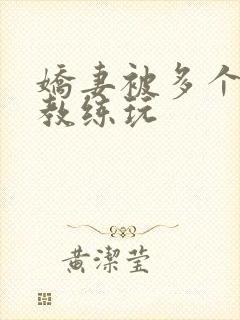 嬌妻被多个
教练玩
黄潔莹